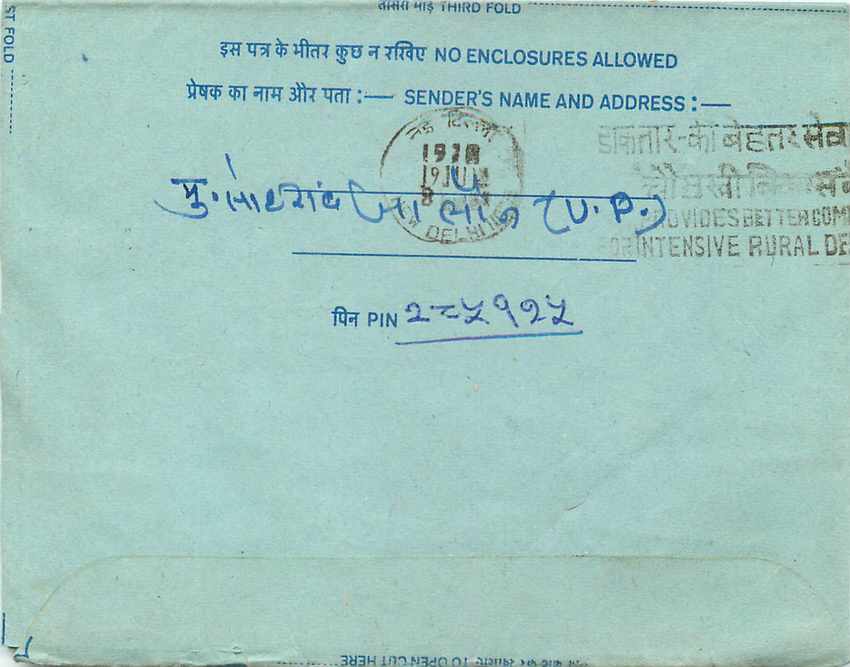 तीसरा मोड़ THIRD FOLD
ST FOLD
इस पत्र के भीतर कुछ न रखिए NO ENCLOSURES ALLOWED
प्रेषक का नाम और पता :— SENDER'S NAME AND ADDRESS :—
नई दिल्ली
1978
DELHI
डाकतार-की बेहतर सेवा
OVIDES BETTER COM
OR INTENSIVE RURAL DE
मु. (U.P.)
पिन PIN २८५१२५
TO OPEN CUT HERE